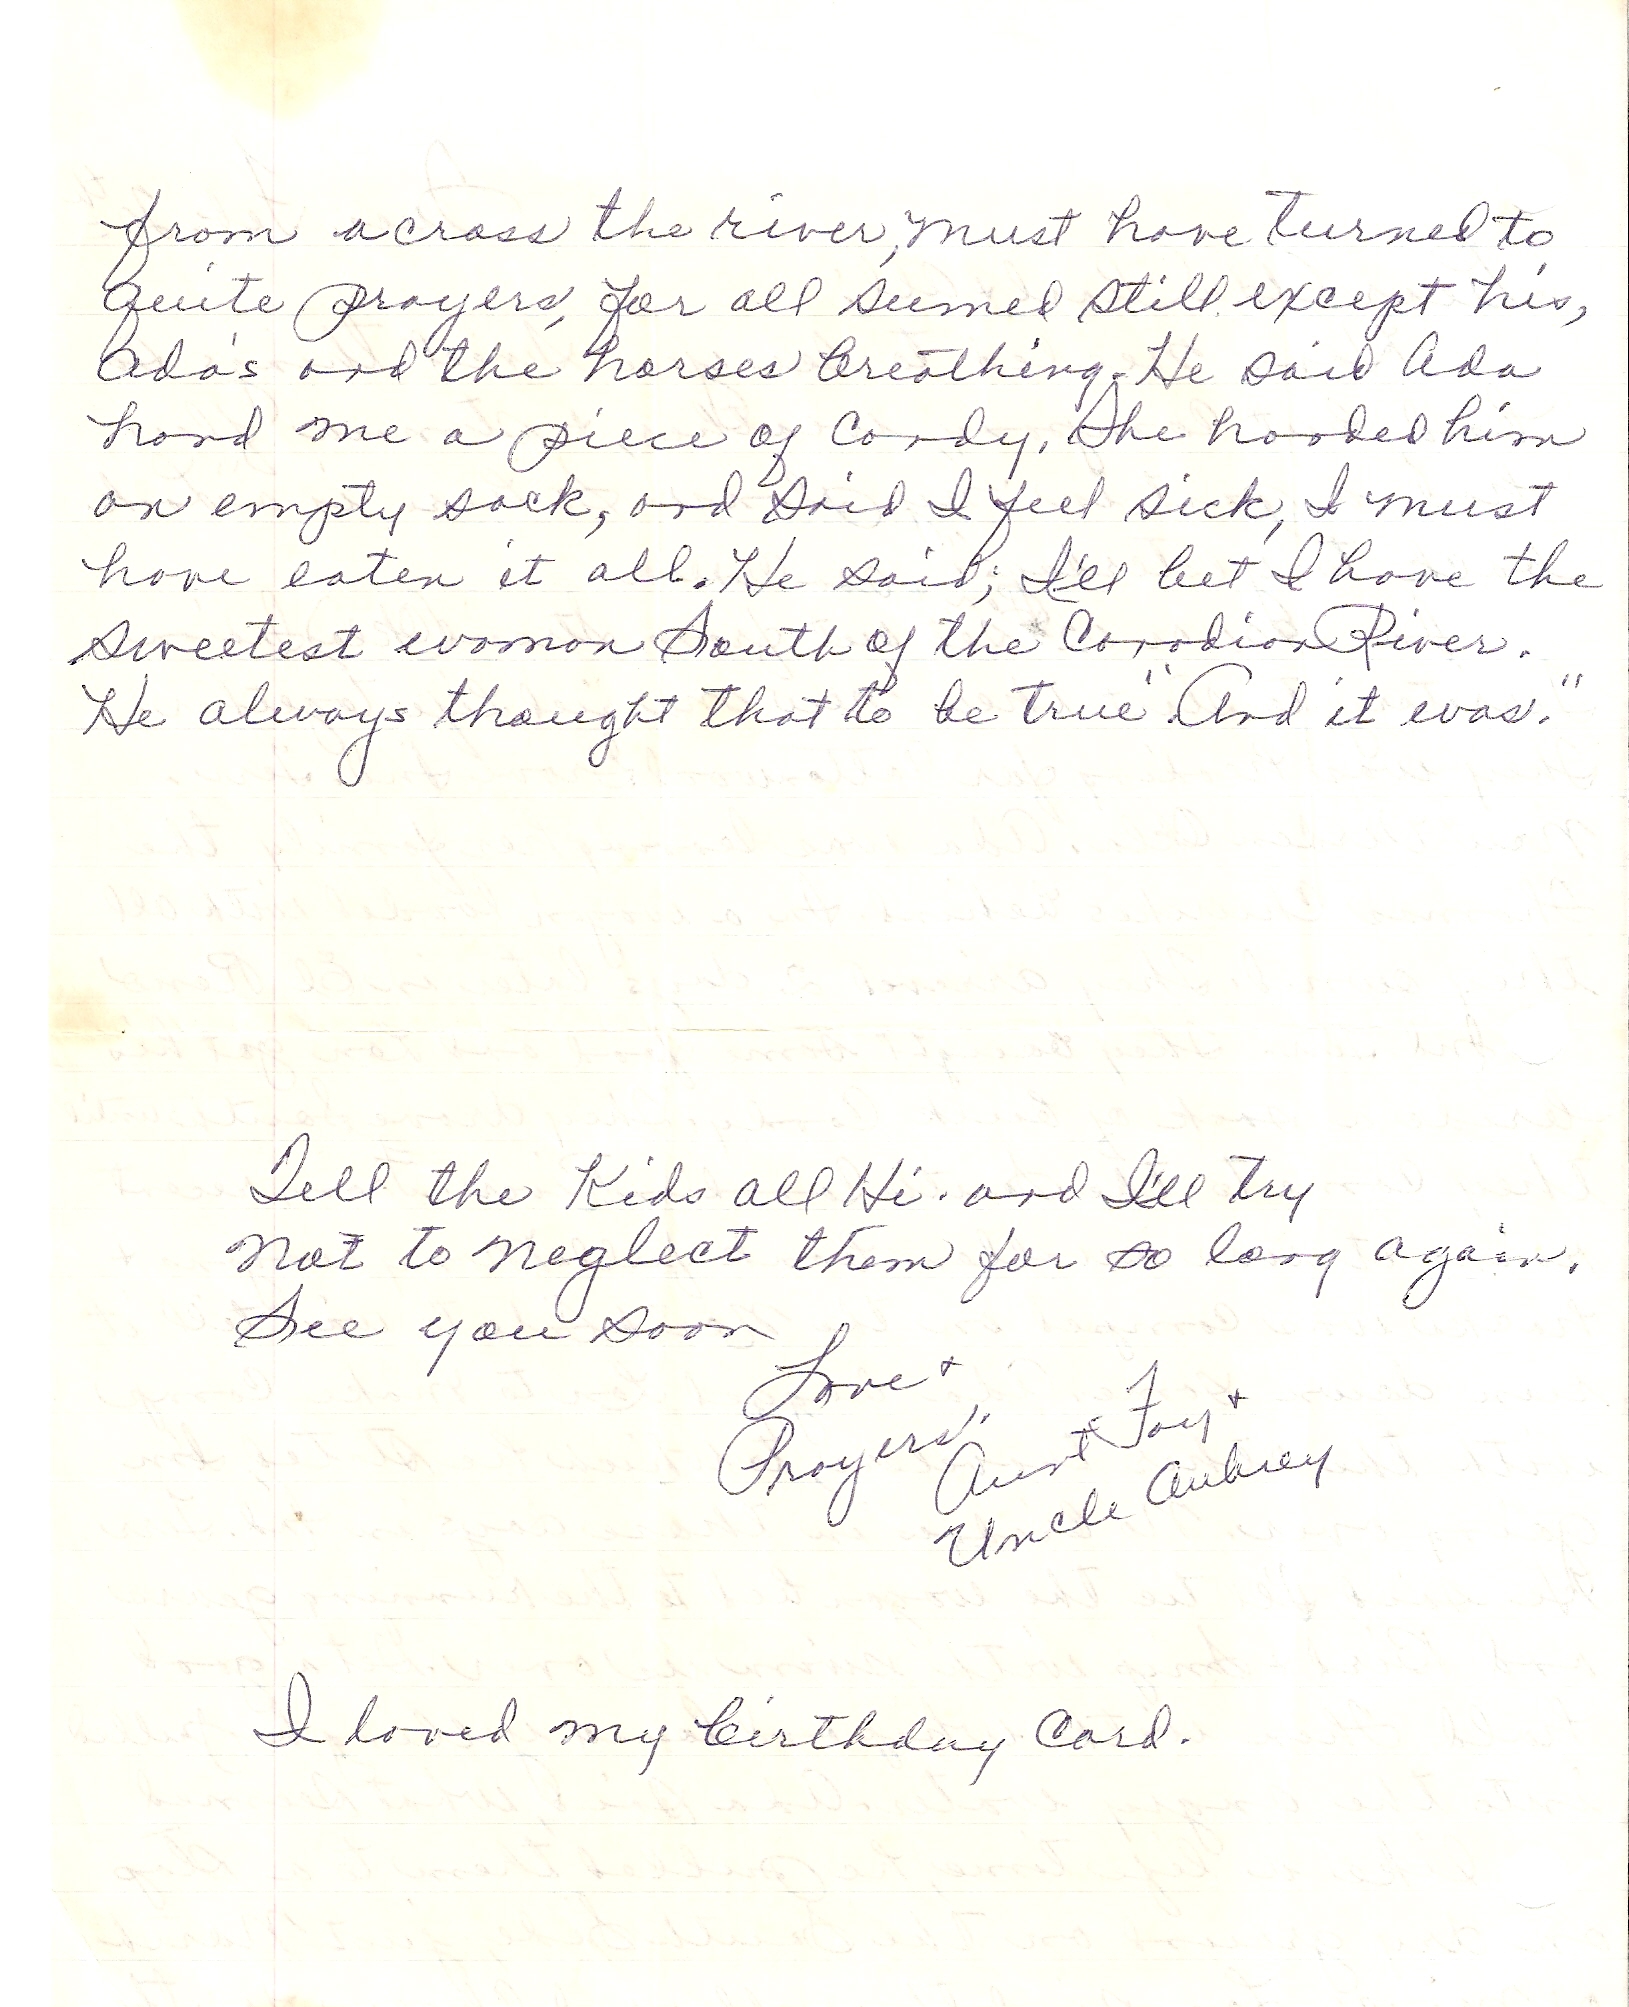 from across the river, must have turned to
quite prayers, for all seemed still except his,
Ada's and the horses breathing. He said Ada
hand me a piece of candy. She handed him
an empty sack, and said I feel sick, I must
have eaten it all. He said; I'll bet I have the
sweetest woman South of the Canadian River.
He always thought that to be true". And it was."
Tell the Kids all Hi. and I'll try
not to neglect them for so long again.
See you soon
Love +
Prayers"
Aunt Fay +
Uncle Aubrey
I loved my birthday Card.